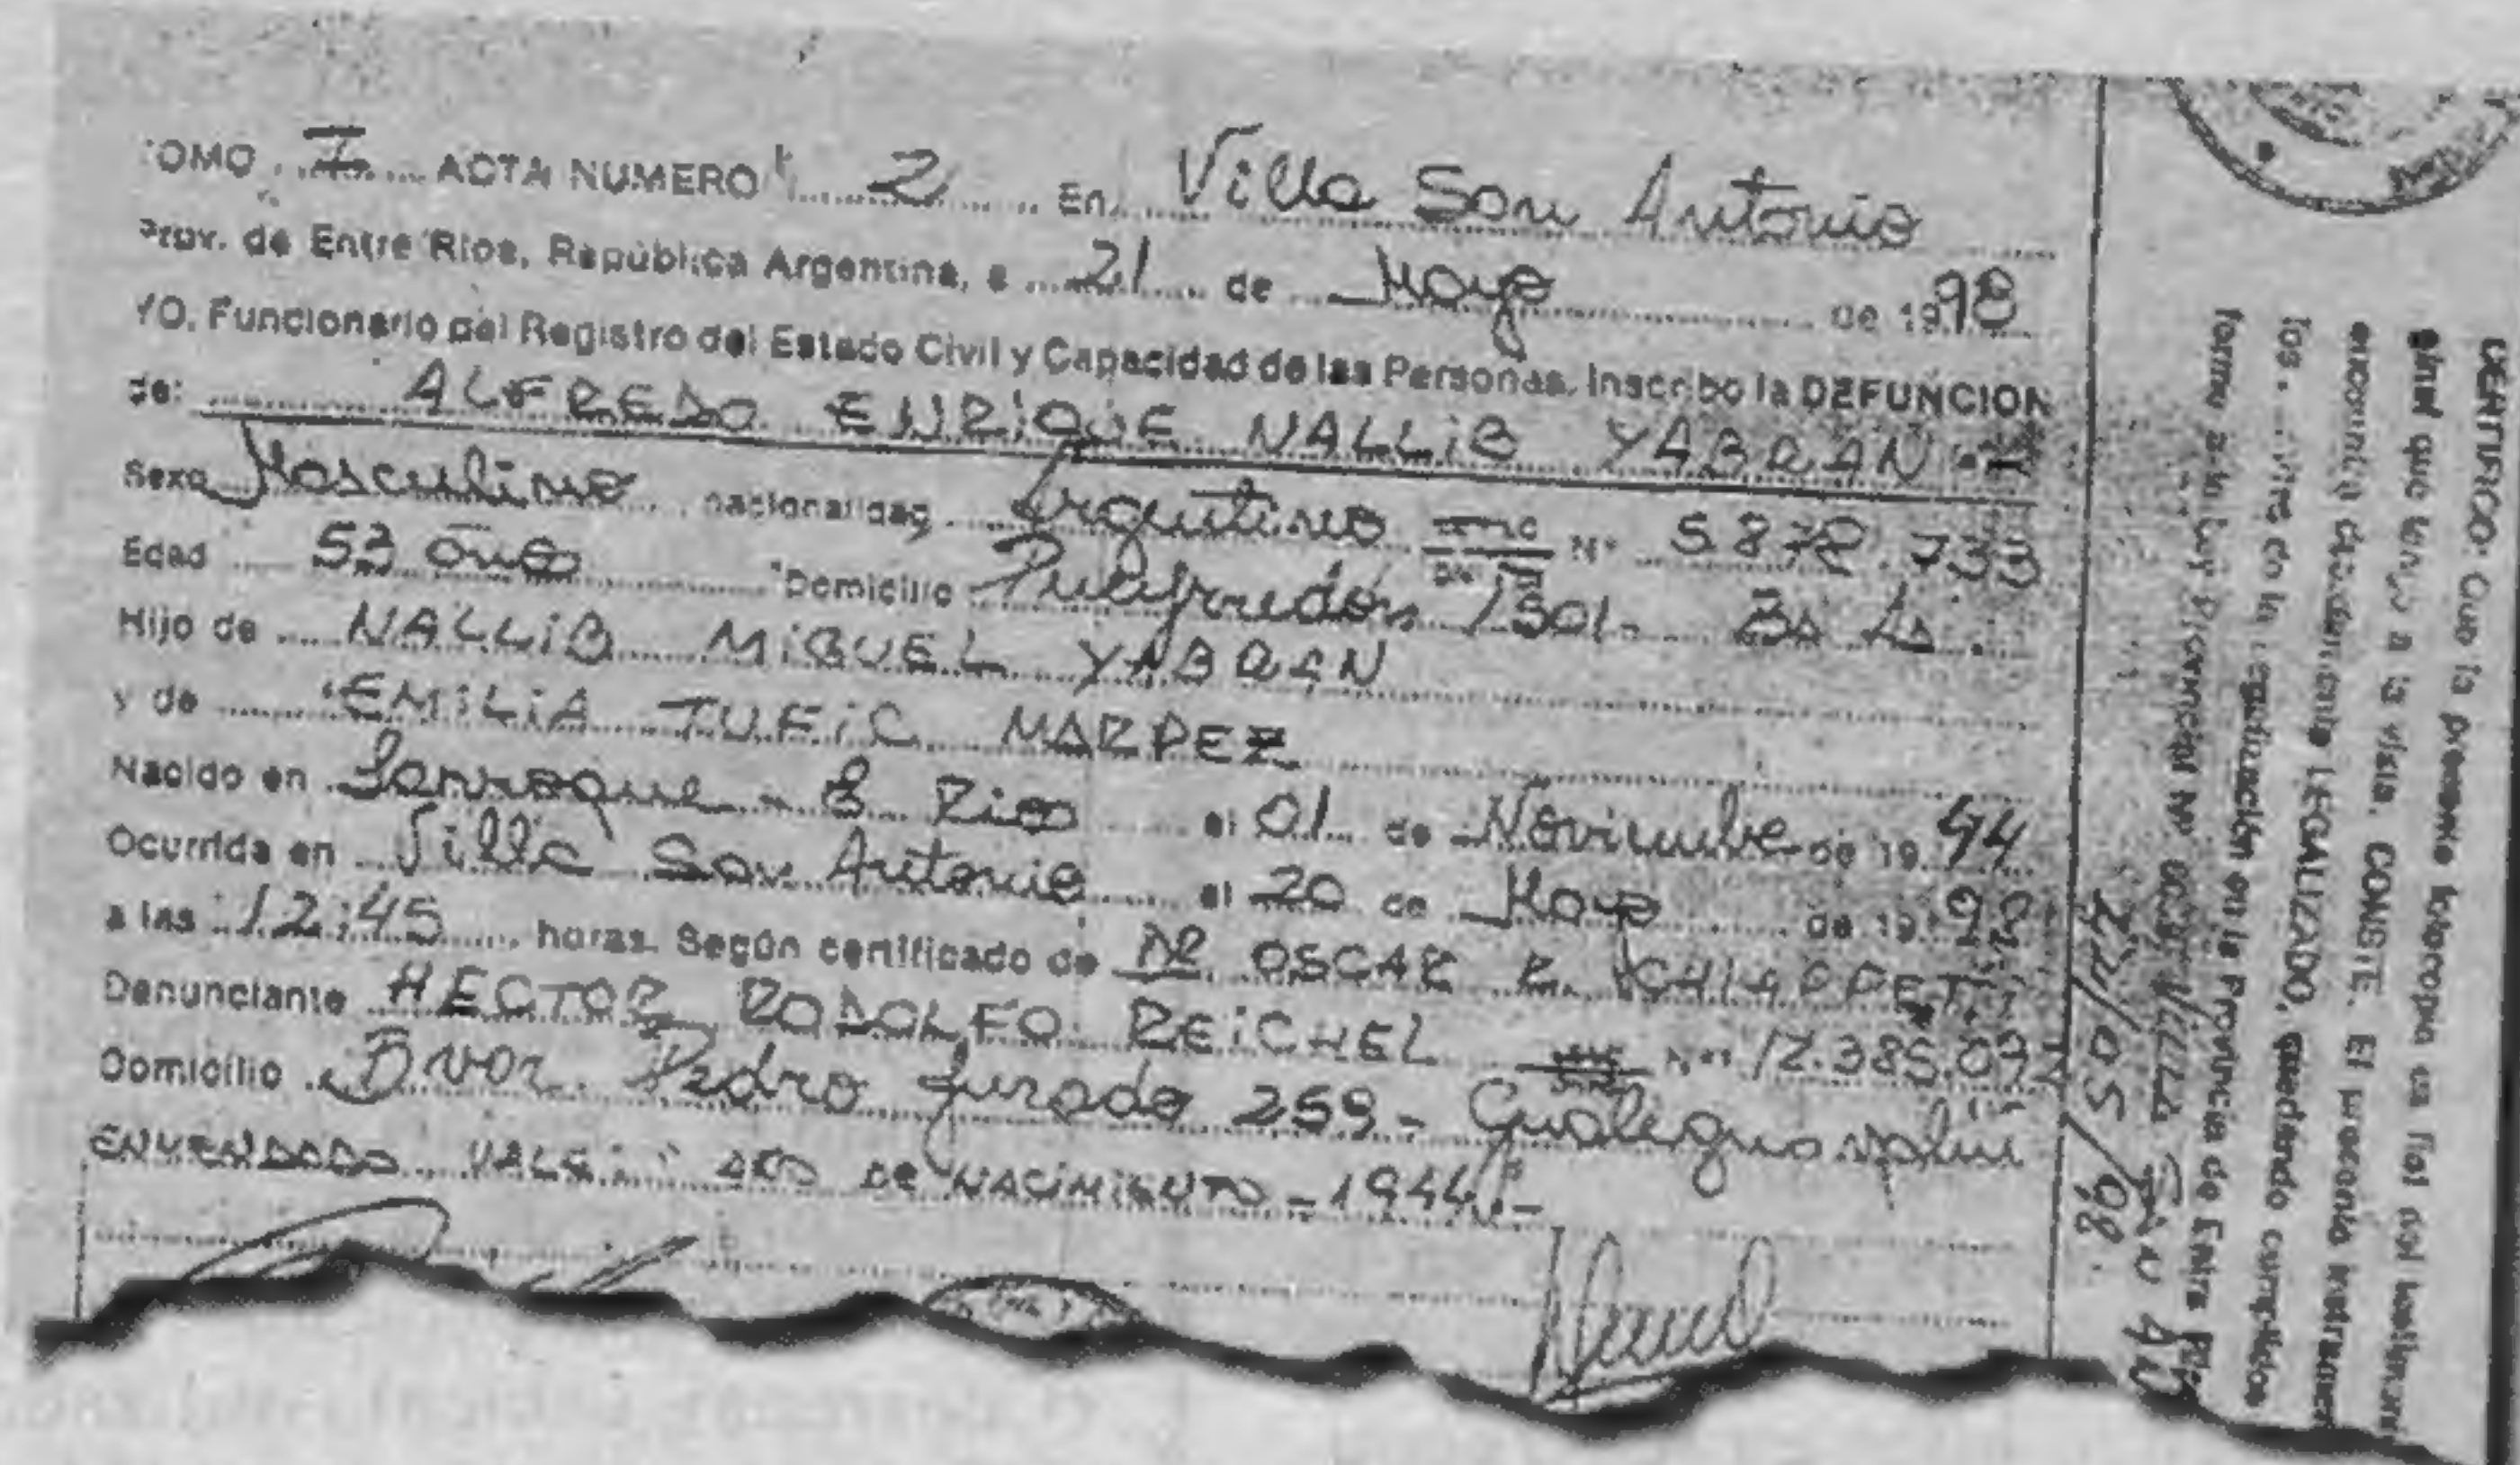 TOMO I ACTA NUMERO 2 En Villa San Antonio
Prov. de Entre Ríos, República Argentina, a 21 de Mayo de 1998
YO, Funcionario del Registro del Estado Civil y Capacidad de las Personas, Inscribo la DEFUNCION
de: ALFREDO ENRiQUE NALLiB YABRAN
Sexo Masculino nacionalidad Argentino N° 5.872.733
Edad 53 años Domicilio Pueyrredón 1501 - Bs As.
Hijo de NALLiB MiGUEL YABRAN
y de EMiLiA TUFiC MARPEZ
Nacido en Larroque - E. Rios el 01 de Noviembre de 1944
Ocurrida en Villa San Antonio el 20 de Mayo de 1998
a las 12:45 horas. Según certificado de DR OSCAR R.
Denunciante HECTOR RODOLFO REiCHEL N°
Domicilio Bvar. Pedro Jurado 259 - Gualeguaychu
ENMENDADO VALE: "AÑO DE NACiMiENTO - 1944" -
CERTIFICO: Que la presente fotocopia es fiel del testimonio
que tengo a la vista. CONSTE. El presente
encuentra debidamente LEGALIZADO, quedando cumplidos
de la Legalización en la Provincia de Entre Ríos
Ley Provincial N°
22/05/98.